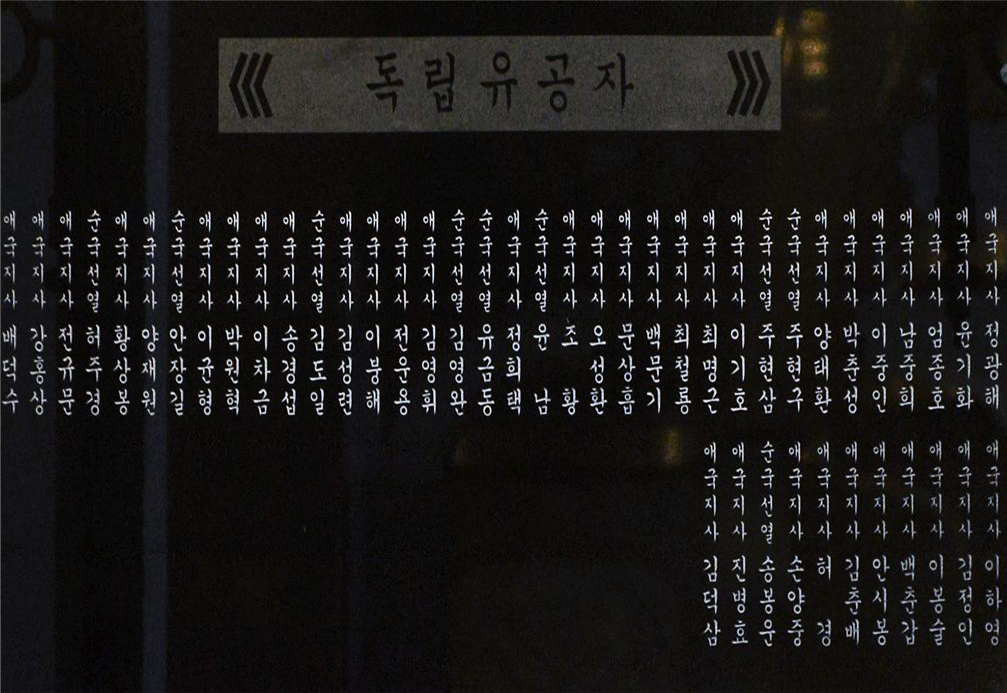 독립유공자
애국지사 정광해
애국지사 윤기화
애국지사 엄종호
애국지사 남중희
애국지사 이중인
애국지사 박춘성
애국지사 양태환
순국선열 주현구
순국선열 주현삼
애국지사 이기호
애국지사 최명근
애국지사 최철룡
애국지사 백문기
애국지사 문상흡
애국지사 오성환
애국지사 조 황
순국선열 윤 남
애국지사 정희택
순국선열 유금동
순국선열 김영완
애국지사 김영휘
애국지사 전운용
애국지사 이붕해
애국지사 김성련
순국선열 김도일
애국지사 송경섭
애국지사 이차금
애국지사 박원혁
애국지사 이균형
순국선열 안장길
애국지사 양재원
애국지사 황상봉
순국선열 허주경
애국지사 전규문
애국지사 강홍상
애국지사 배덕수
애국지사 이하영
애국지사 김정인
애국지사 이봉술
애국지사 백춘갑
애국지사 안시봉
애국지사 김춘배
애국지사 허 경
애국지사 손양중
순국선열 송봉운
애국지사 진병효
애국지사 김덕삼